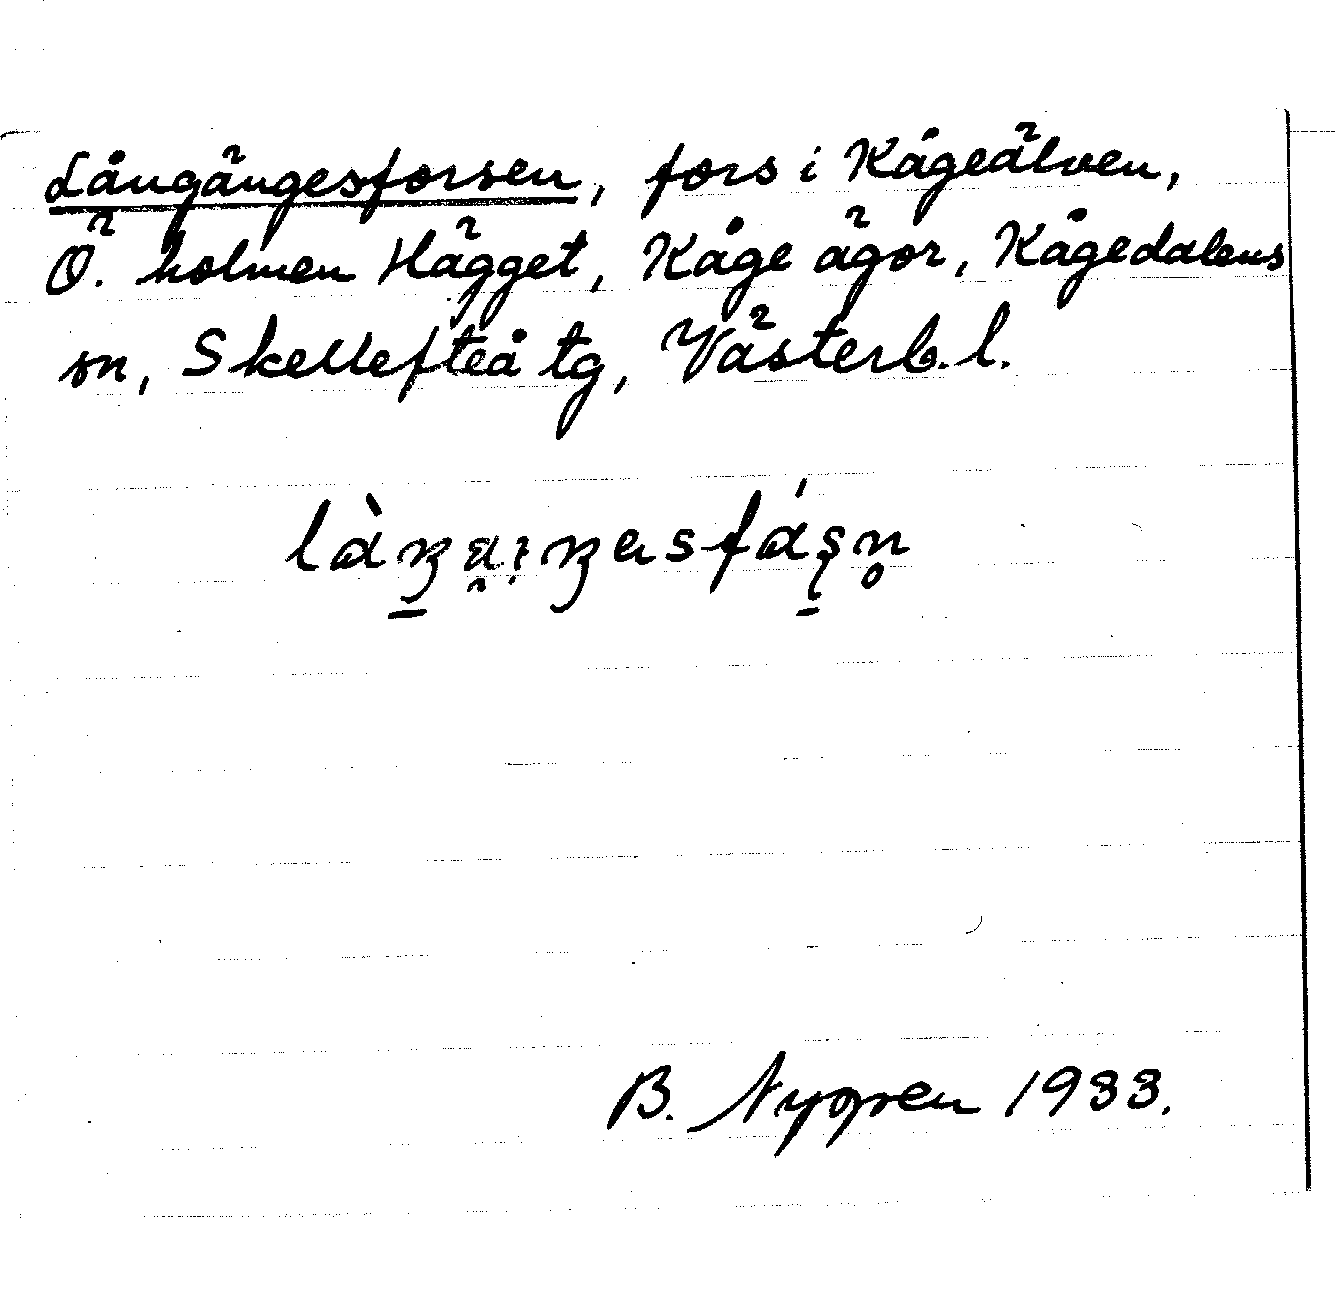 Långängesforsen, fors i Kågeälven,
Ö. holmen Hägget, Kåge ägor, Kågedalens
sn, Skellefteå tg, Västerb. l.
B. Nygren 1933.